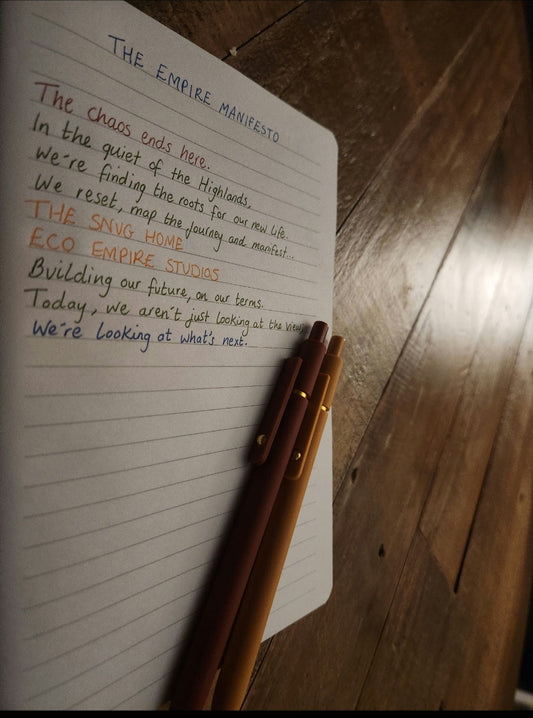 THE EMPIRE MANIFESTO
The chaos ends here.
In the quiet of the Highlands,
We're finding the roots for our new life.
We reset, map the journey and manifest...
THE SNUG HOME
ECO EMPIRE STUDIOS
Building our future, on our terms.
Today, we aren't just looking at the view,
We're looking at what's next.